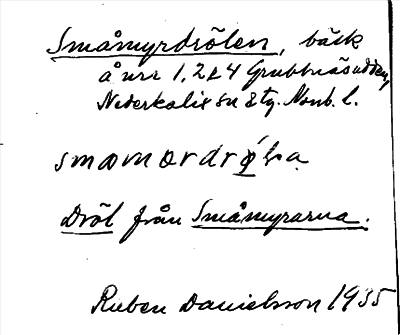 Småmyrdrölen, bäck
å nrr 1, 2 & 4 Grubbnäsudden,
Nederkalix sn Stg. Nonb. l.
Dröl från Småmyrarna.
Ruben Danielsson 1935